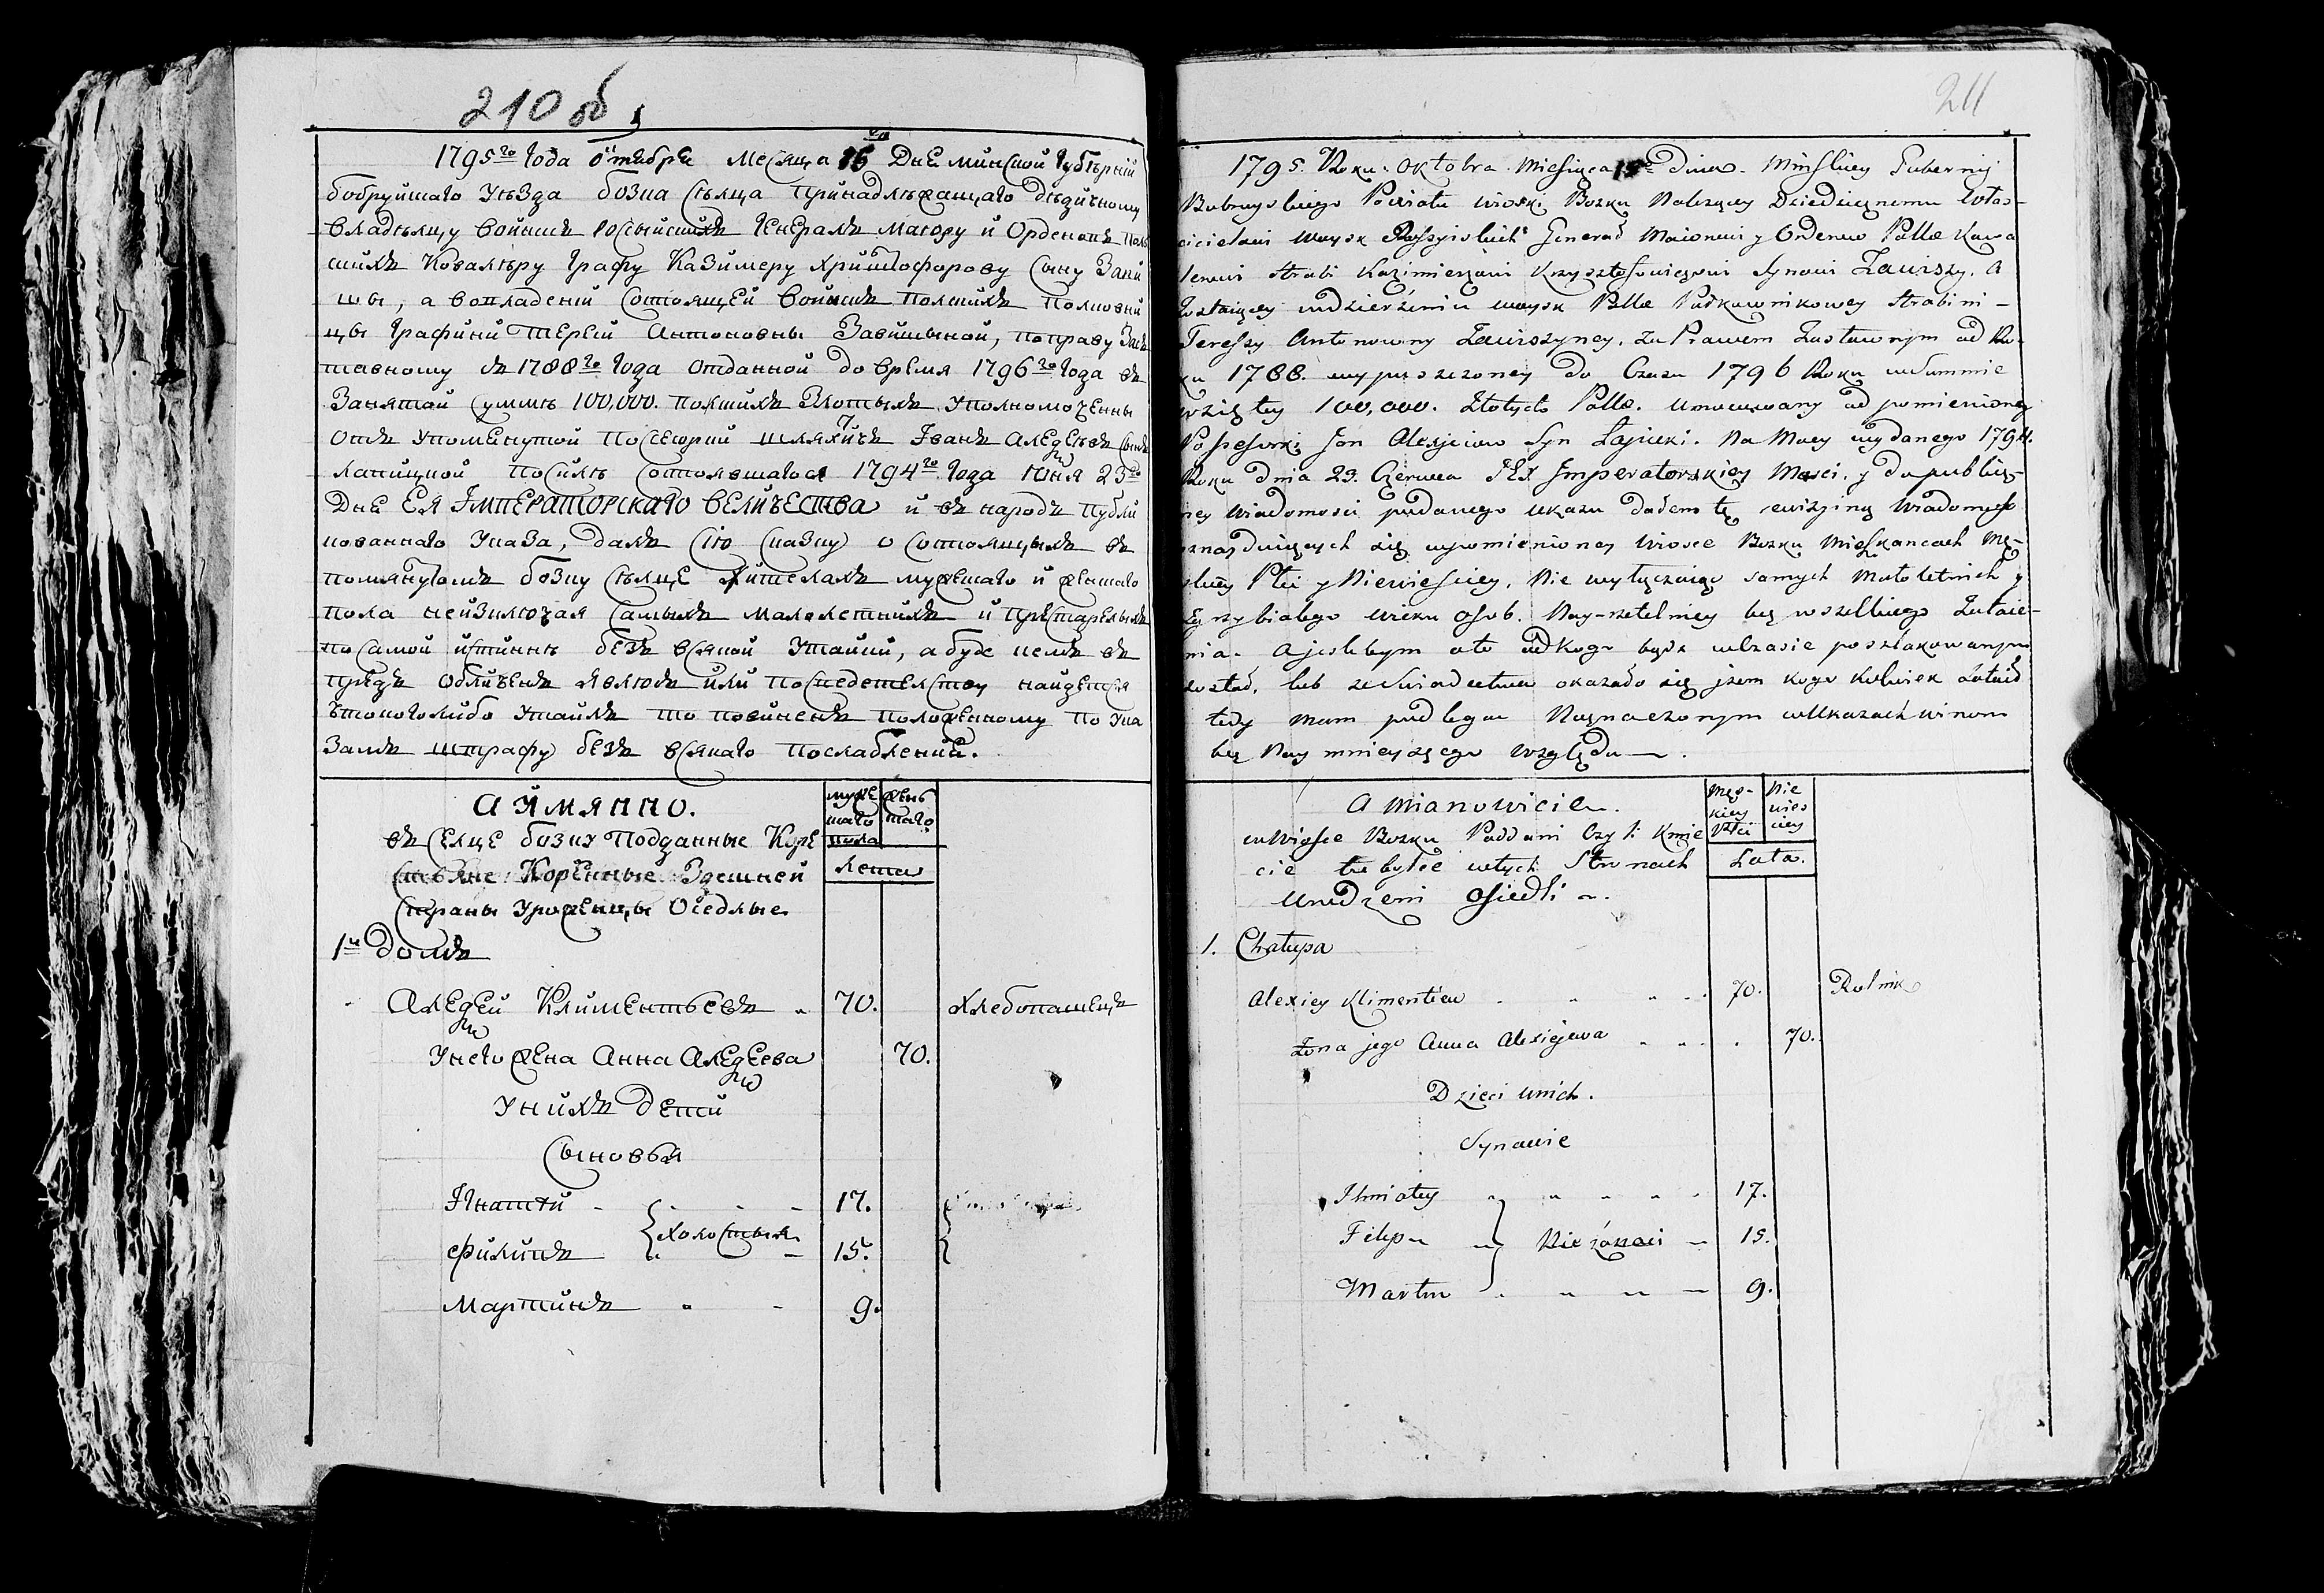 210 об
1795го года октября месяца 15 дня минской губернии
бобруйского уезда бозка сельца принадлежащаго дедичному
владельцу войскъ россыйскихъ генералъ маіору и орденовъ поль
скихъ кавалеру графу Казимеру Христофорову сыну Зави
шы, а вовладении состоящей войскъ польскихъ полковни
цы графини Терези Антоновны Завишыной, поправу Зас
тавному съ 1788го года отданной до время 1796го года въ
Занятой сумме 100,000. польскихъ Злотыхъ уполномоченны
отъ упомянутой посесорки шляхтичъ Іванъ Алексеевъ сынъ
посиле состоявшагося 1794го года июня 23го
дня ЕЯ ІМПЕРАТОРСКАГО ВЕЛИЧЕСТВА и въ народъ публи
кованнаго указа, далъ сію сказку о состоящыхъ въ
помянутомъ бозку сельце жителахъ мужескаго и женскаго
пола неизключая самыхъ малолетнихъ и престарелыхъ
посамой истинне безъ всякой утайки, а буде кемъ въ
предъ обличенъ явлюсь или найдется
чтокоголибо утаилъ то повиненъ положенному по ука
замъ штрафу безъ всякаго послаблениы.
АИМЯННО.
муже
скаго
пола
жень
скаго
лета
въ селце бозку подданные Кре
стьяне Коренные Здешней
страны уроженцы оседлые
1й домъ
Алексей Климентьевъ 70. Хлебопашецъ
унего жена Анна Алексеева 70.
унихъ дети
сыновья
Ігнатій 17.
холостыя
Филипъ 15.
Мартинъ 9.
211
1795. Roku. Oktobra. Miesięca 15 Dnia. Minskiey Gubernij
Bobruyskiego Powiatu wioski Bozku Nalezący Dziedzicznemu Włas-
cicielowi Woysk Rossyiskich Generał Maiorowi y Orderow Polls Kawa
lerowi Hrabi Kazimierzowi Krzysztofowiczowi Synowi Zawiszy. A
Zostaiącey wdzierżeniu woysk Polls Pułkownikowey Hrabini -
Teressy Antonowny Zawiszyney, Za Prawem Zastawnym od Ro-
ku 1788. wypuszczoney do Czasu 1796 Roku wSummie
wziętey 100,000. Złotych Polls. Umocowany od pomienioney
Possesorki Jan Alexieiow Syn Łapicki. Na Mocy wydanego 1794.
Roku dnia 23. Czerwca JEJ Imperatorskiey Mosci, y do publicz-
ney wiadomosci podanego ukazu dałem tę rewizyiną wiadomosc
oznayduiących się wpomienioney wiosce Bozku Mieszkancach Mę-
skiey Płci y Niewiesciey, Nie wyłączaiąc samych Małoletnich y
Zgrzybiałego wieku osob. Nay-rzetelniey bez wszelkiego Zataie-
nia. A jeslibym oto odkogo bądz wczasie poszlakowanym
został, lub zeswiadectwa okazało się jzem kogo kolwiek Zataił
tedy mam podlegac Naznaczonym wUkazach winom
bez Nay mnieyszego względu.
A mianowicie.
Męz-
kiey
Płci
Nie
wies
ciey
Lata.
wWiosce Bozku Poddani Czyli Kmie
cie tuteysze wtych Stronach
Urodzeni Osiedli.
1. Chałupa
Alexiey Klimentiew 70. Rolnik
Zona jego Anna Alexiejewa 70.
Dzieci unich.
Synowie
Ihnatey 17.
Filip 15.
Nie zonaci
Martin 9.